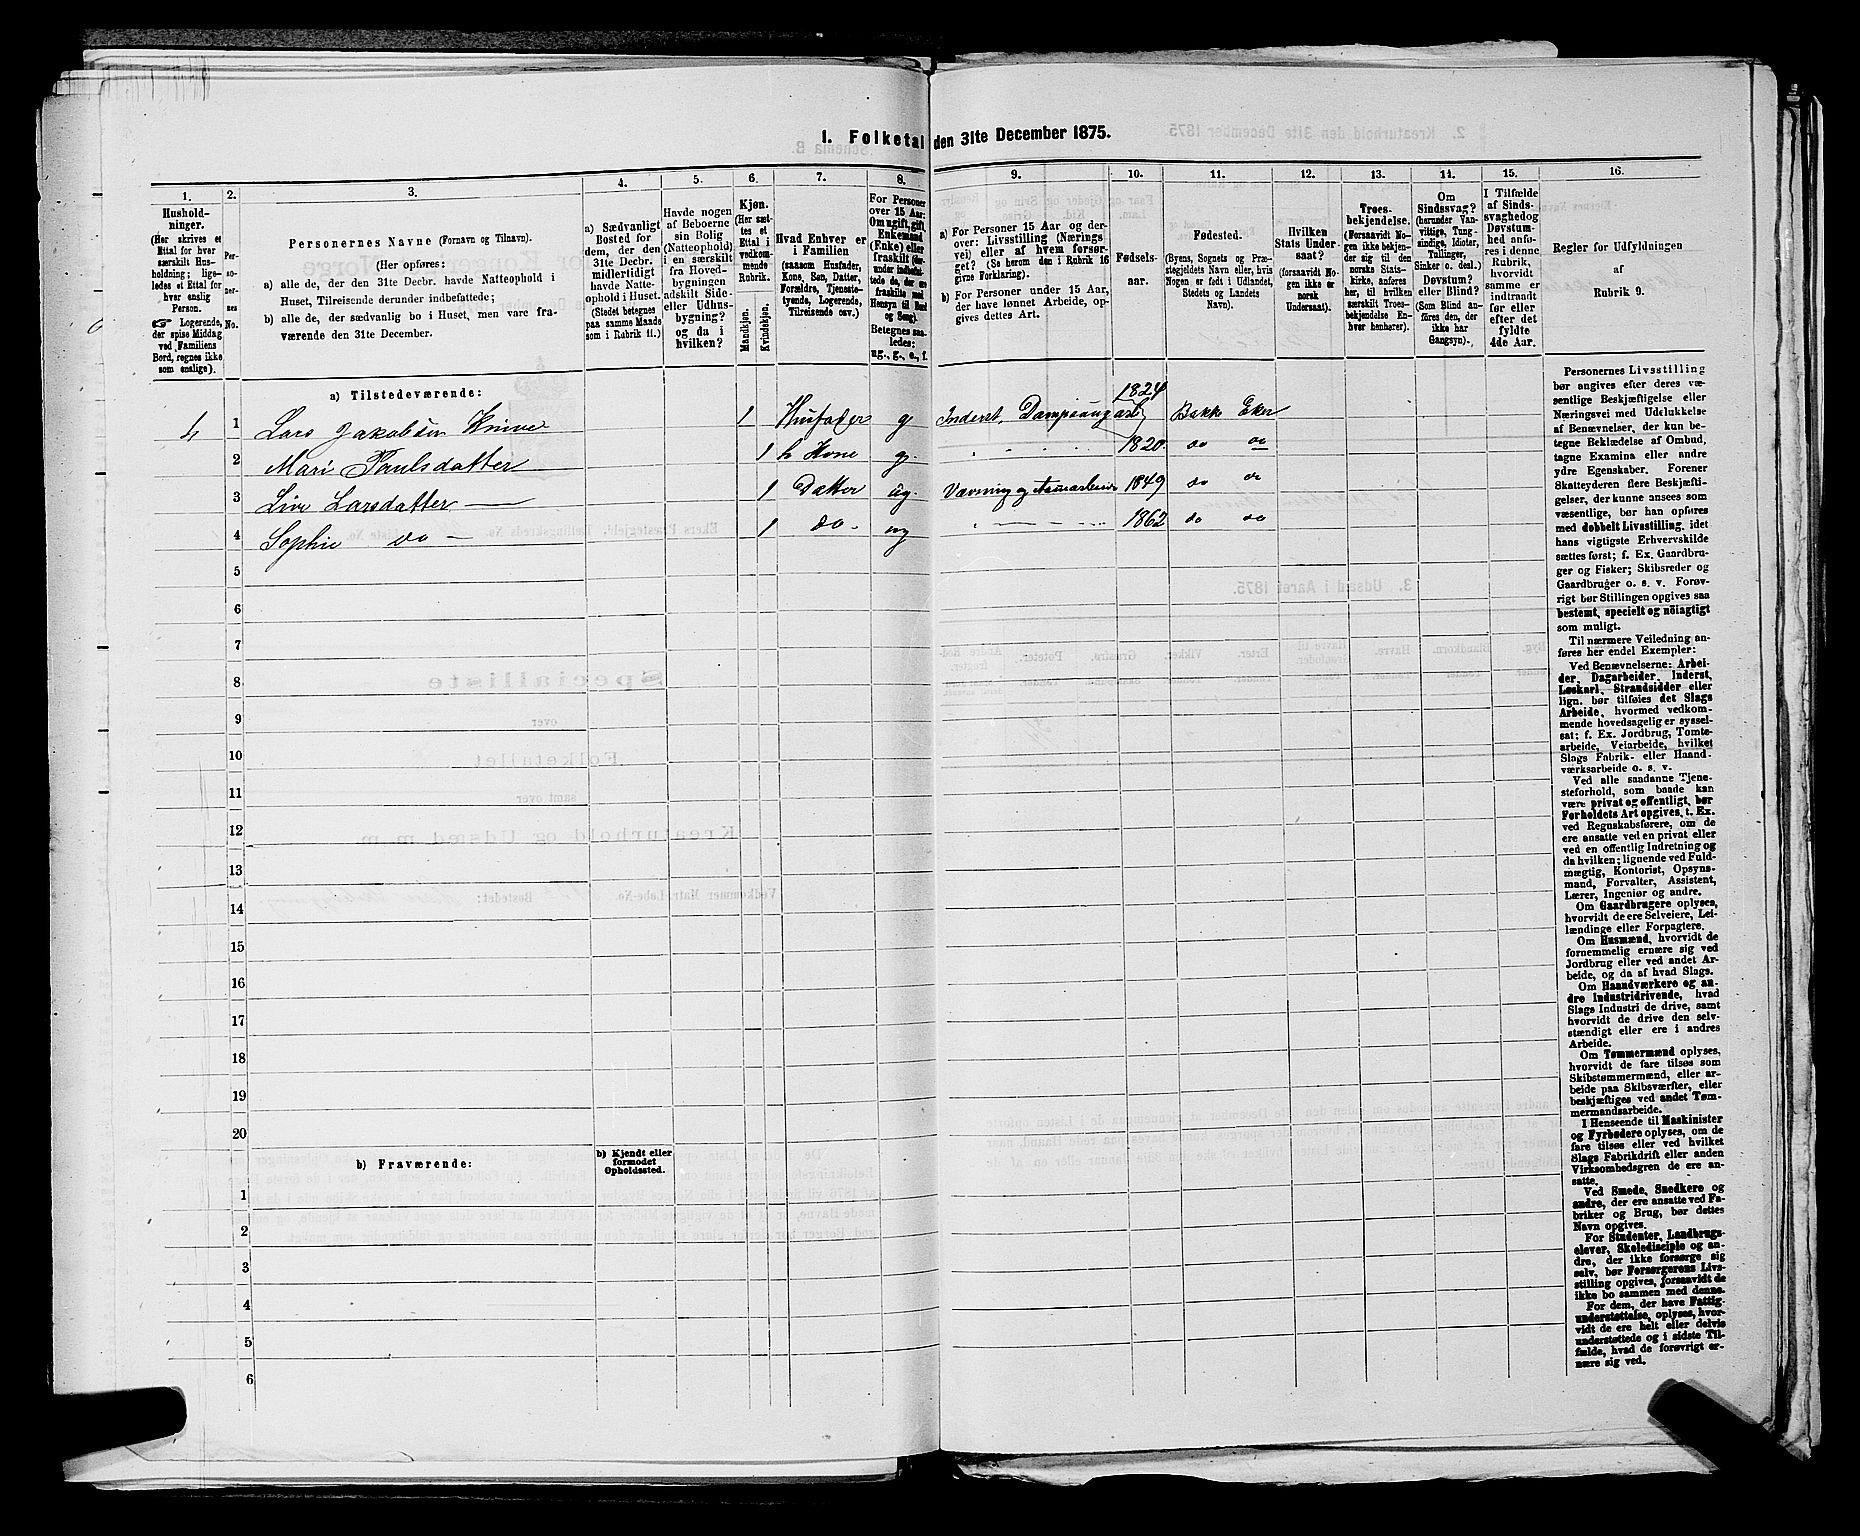 1. Folketal den 31te December 1875.
1.
2.
3.
4.
5.
6.
7.
8.
9.
10.
11.
12.
13.
14.
15.
16.
Hushold-
ninger.
(Her skrives et
Ettal for hver
særskilt Hus-
holdning; lige-
ledes et Ettal for
hver enslig
Person.
☞ Logerende,
der spise Middag
ved Familiens
Bord, regnes ikke
som enslige).
Per-
so-
ner-
nes
No.
Personernes Navne (Fornavn og Tilnavn).
(Her opføres:
a) alle de, der den 31te Decbr. havde Natteophold i
Huset, Tilreisende derunder indbefattede;
b) alle de, der sædvanlig bo i Huset, men vare fra-
værende den 31te December.
a) Sædvanligt
Bosted for
dem, der den
31te Decbr.
midlertidigt
havde Natte-
ophold i Huset.
(Stedet betegnes
paa samme Maade
som i Rubrik 11.)
Havde nogen
af Beboerne
sin Bolig
(Natteophold)
i en særskilt
fra Hoved-
bygningen
adskilt Side-
eller Udhus-
bygning?
og da i
hvilken?
Kjøn.
(Her sæt-
tes et
Ettal i
vedkom-
mende
Rubrik.
Mandkjøn.
Kvindekjøn.
Hvad Enhver er
i Familien
(saasom Husfader,
Kone, Søn, Datter,
Forældre, Tjeneste-
tyende, Logerende,
Tilreisende osv.)
For Personer
over 15 Aar:
Om ugift, gift,
Enkemand
(Enke) eller
fraskilt
Betegnes saa-
ledes:
ug., g., e., f.
a) For Personer 15 Aar og der-
over: Livsstilling (Nærings
vei) eller af hvem forsør-
get? (Se herom den i Rubrik 16
givne Forklaring).
b) For Personer under 15 Aar,
der have lønnet Arbeide, op-
gives dettes Art.
Fødsels-
aar.
Fødested.
(Byens, Sognets og Præ-
stegjeldets Navn eller, hvis
Nogen er født i Udlandet,
Stedets og Landets
Navn).
Hvilken
Stats Under-
saat?
(forsaavidt No-
gen ikke er
norsk
Undersaat).
Troes-
bekjendelse.
(Forsaavidt No-
gen ikke bekjen-
der sig til den
norske Stats-
kirke, anføres
her, til hvilken
særskilt Troes-
bekjendelse En-
hver henhører).
Om
Sindssvag?
(herunder Van-
vittige, Tung-
sindige, Idioter,
Tullinger,
Sinker o. desl.)
Døvstum?
eller Blind?
(Som Blind an-
føres den, der
ikke har
Gangsyn).
I Tilfælde
af Sinds-
svaghed og
Døvstum-
hed anfø-
res i denne
Rubrik,
hvorvidt
samme er
indtraadt
før eller
efter det
fyldte
4de Aar.
Regler for Udfyldningen
af
Rubrik 9.
a) Tilstedeværende:
1 Lars Jakobsen 1 Husfader g Inderst, Dampsaugarb 1824 Bakke Eker
2 Mari Paulsdatter 1 h Kone g. 1820 do do
3 Live Larsdatter — 1 Datter ug. Vævning og 1849 do do
4 Sophie do — 1 do - ug 1862 do do
5
6
7
8
9
10
11
12
13
14
15
16
17
18
19
20
b) Fraværende:
b) Kjendt eller
formodet
Opholdssted.
1
2
3
4
5
6
Personernes Livsstilling
bør angives efter deres væ-
sentlige Beskjæftigelse eller
Næringsvei med Udelukkelse
af Benævnelser, der kun be-
tegne Beklædelse af Ombud,
tagne Examina eller andre
ydre Egenskaber. Forener
Skatteyderen flere Beskjæfti-
gelser, der kunne ansees som
væsentlige, bør han opføres
med dobbelt Livsstilling, idet
hans vigtigste Erhvervskilde
sættes først; f. Ex. Gaardbru-
ger og Fisker; Skibsreder og
Gaardbruger o. s. v. Forøv-
rigt bør Stillingen opgives saa
bestemt, specielt og nöiagtigt
som muligt.
Til nærmere Veiledning an-
føres her endel Exempler:
Ved Benævnelserne: Arbei-
der, Dagarbeider, Inderst,
Løskarl, Strandsidder eller
lign. bør tilføies det Slags
Arbeide, hvormed vedkom-
mende hovedsagelig er syssel-
sat; f. Ex. Jordbrug, Tomte-
arbeide, Veiarbeide, hvilket
Slags Fabrik- eller Haand-
værksarbeide o. s. v.
Ved alle saadanne Tjene-
steforhold, som baade kan
være privat og offentligt, bør
Forholdets Art opgives, t. Ex.
ved Regnskabsførere, om de
ere ansatte ved en privat eller
ved en offentlig Indretning og
da hvilken; lignende ved Fuld-
mægtig, Kontorist, Opsyns-
mand, Forvalter, Assistent,
Lærer, Ingeniør og andre.
Om Gaardbrugere oplyses,
hvorvidt de ere Selveiere, Lei-
lændinge eller Forpagtere.
Om Husmænd, hvorvidt de
fornemmelig ernære sig ved
Jordbrug eller ved andet Ar-
beide, og da af hvad Slags.
Om Haandværkere og an-
dre Industridrivende, hvad
Slags Industri de drive, samt
hvorvidt de drive den selv-
stændigt eller ere i andres
Arbeide.
Om Tømmermænd oplyses,
hvorvidt de fare tilsøs som
Skibstømmermænd, eller ar-
beide paa Skibsværfter, eller
beskjæftiges ved andet Tøm-
mermandsarbeide.
I Henseende til Maskinister
og Fyrbødere oplyses, om de
fare tilsøs eller ved hvilket
Slags Fabrikdrift eller anden
Virksomhedsgren de ere an-
satte.
Ved Smede, Snedkere og
andre, der ere ansatte ved Fa-
briker og Brug, bør dettes
Navn opgives.
For Studenter, Landbrugs-
elever, Skoledisciple og an-
dre, der ikke forsørge sig
selv, bør Forsørgerens Livs-
stilling opgives, forsaavidt de
ikke bo sammen med denne.
For dem, der have Fattig-
understøttelse, oplyses, hvor-
vidt de ere helt eller delvis
understøttede og i sidste Til-
fælde, hvad de forøvrigt er-
nære sig ved.